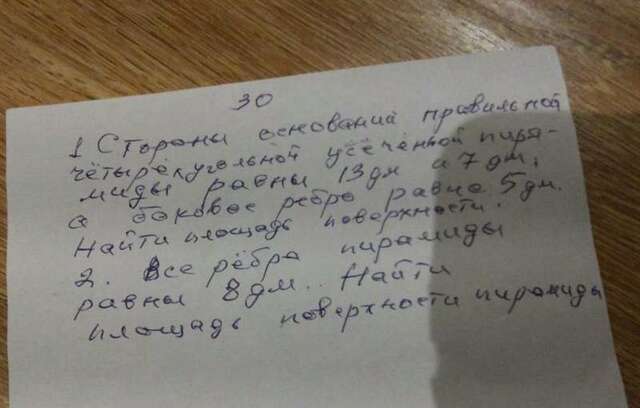 30
1 Стороны оснований правильной
четырёхугольной усечённой пира-
миды равны 13дм и 7 дм,
а боковое ребро равно 5дм.
Найти площадь поверхности.
2. Все рёбра пирамиды
равны 8дм.. Найти
площадь поверхности пирамиды